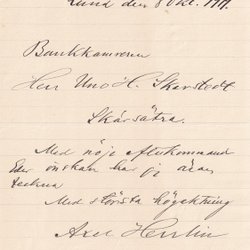 Lund den 8 Okt. 1917.
Bankkamreren
Herr Uno H. Skarstedt.
Skärsätra.
Med nöje
Eder önskan har jag äran
teckna
Med största högaktning
Axel Herrlin